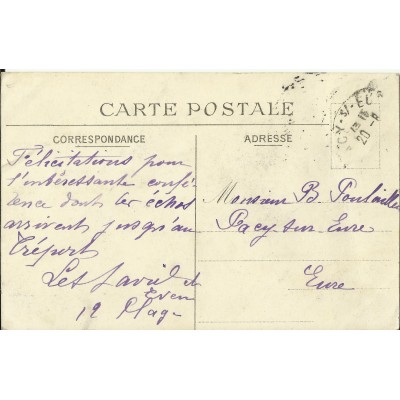 CARTE POSTALE
CORRESPONDANCE
ADRESSE
Félicitations pour
l'intéressante confé
rence dont les échos
arrivent jusqu'au
Tréport
Les
12 Plage
Monsieur B. Poulailler
Pacy sur Eure
Eure